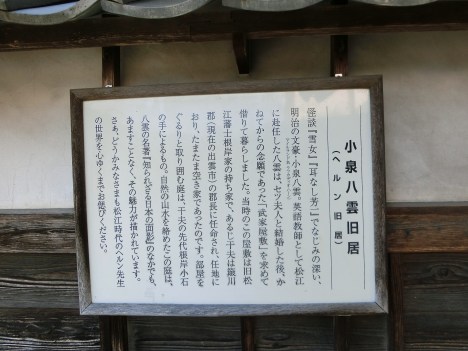 小泉八雲旧居
（ヘルン旧居）
怪談『雪女』『耳なし芳一』でなじみの深い、
明治の文豪・小泉八雲。英語教師として松江
に赴任した八雲は、セツ夫人と結婚した後、か
ねてからの念願であった「武家屋敷」を求めて
借りて暮らしました。当時のこの屋敷は旧松
江藩士根岸家の持ち家で、あるじ干夫は簸川
郡（現在の出雲市）の郡長に任命され、任地に
おり、たまたま空き家であったのです。部屋を
ぐるりと取り囲む庭は、干夫の先代根岸小石
の手によるもの。自然の山水を絡めたこの庭は、
八雲の名著『知られざる日本の面影』のなかでも、
あますことなく、その魅力が描かれています。
さあ、どうかみなさまも松江時代のヘルン先生
の世界を心ゆくまでお遊びください。